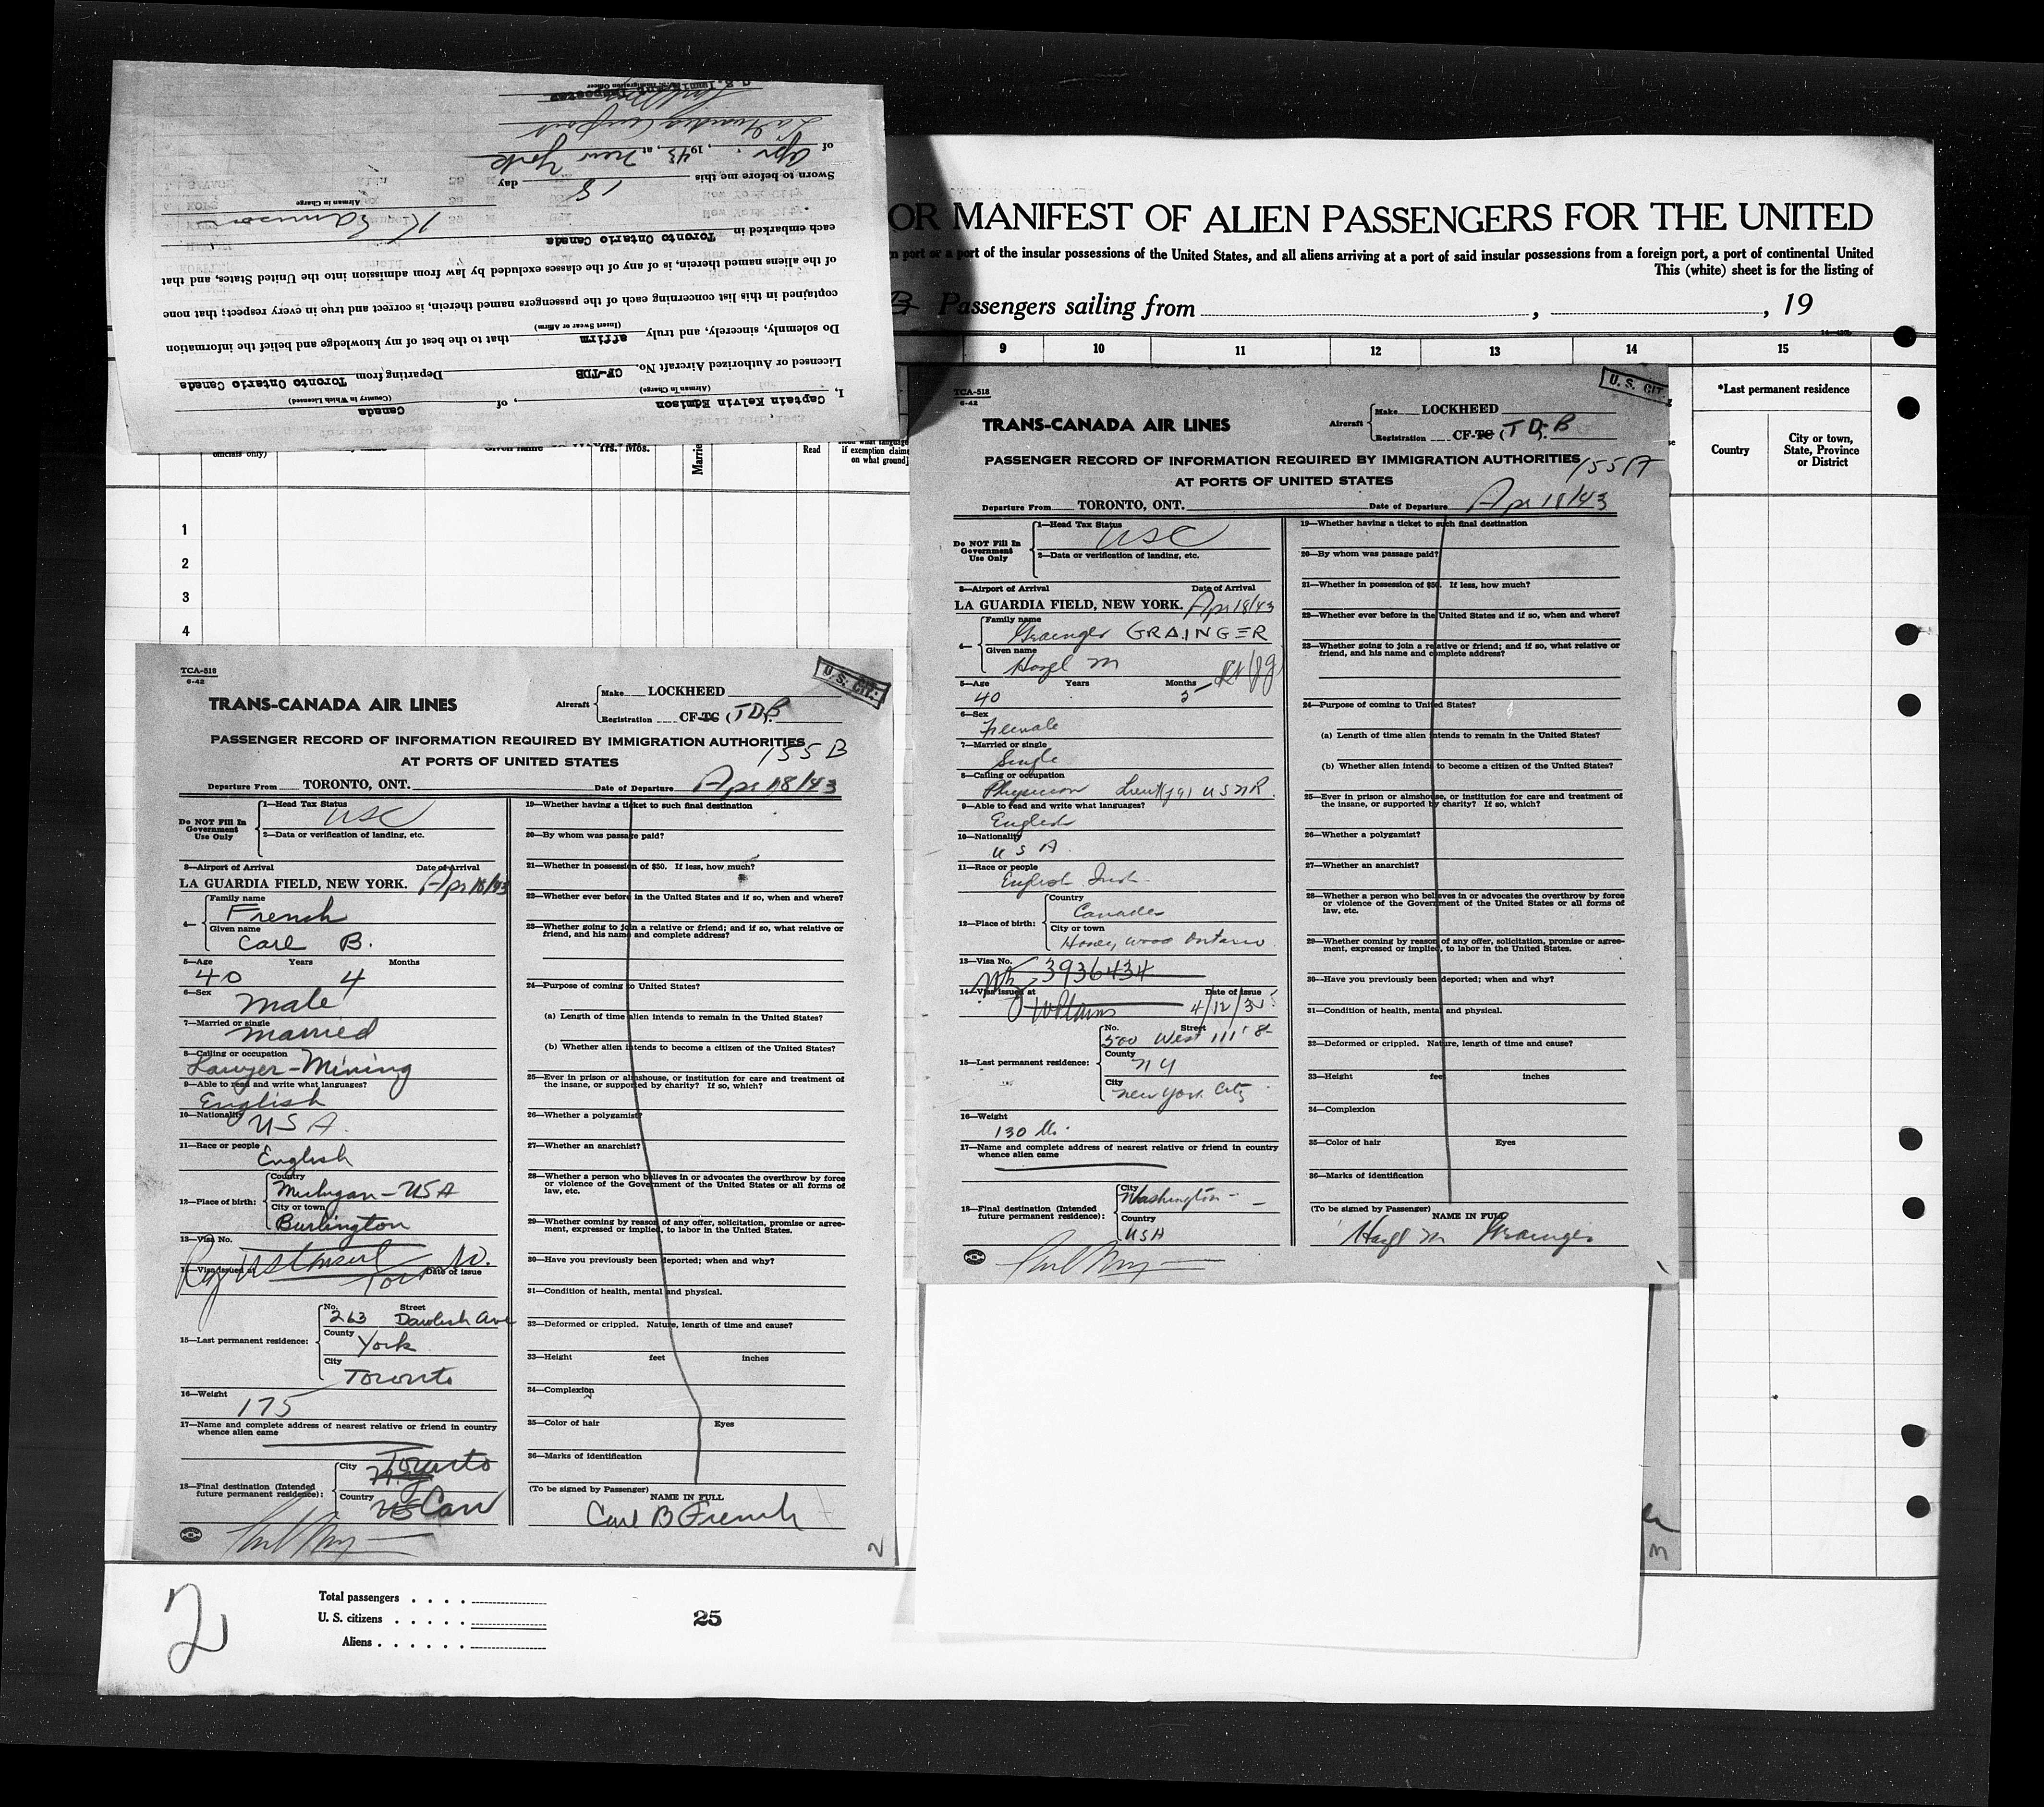 I, Captain Kelvin Edmison, of Canada
(Airman in Charge) (Country in Which Licensed)
Licensed or Authorized Aircraft No. CF-TDB Departing from Toronto Ontario Canada
Do solemnly, sincerely, and truly affirm that to the best of my knowledge and belief the information
(Insert Swear or Affirm)
contained in this list concerning each of the passengers named therein, is correct and true in every respect; that none
of the aliens named therein, is of any of the classes excluded by law from admission into the United States, and that
each embarked in Toronto Ontario Canada
K Edmison
Airman in Charge
Sworn to before me this 18 day
of Apr., 1943, at New York
La Guardia Airport
OR MANIFEST OF ALIEN PASSENGERS FOR THE UNITED
n port or a port of the insular possessions of the United States, and all aliens arriving at a port of said insular possessions from a foreign port, a port of continental United
This (white) sheet is for the listing of
Passengers sailing from , , 19
9 10 11 12 13 14 15
*Last permanent residence
Country
City or town, State, Province or District
officials only)
Given name
Yrs. Mos.
Read
if exemption claime
on what ground)
1
2
3
4
TCA-518
6-42
U. S. CIT.
TRANS-CANADA AIR LINES
Aircraft Make LOCKHEED
Registration CF-TC (TDB)
PASSENGER RECORD OF INFORMATION REQUIRED BY IMMIGRATION AUTHORITIES
155 B
AT PORTS OF UNITED STATES
Departure From TORONTO, ONT. Date of Departure Apr 18/43
Do NOT Fill In Government Use Only
1—Head Tax Status USC
2—Data or verification of landing, etc.
3—Airport of Arrival Date of Arrival
LA GUARDIA FIELD, NEW YORK. Apr 18/43
4— Family name French
Given name Carl B.
5—Age Years Months
40 4
6—Sex Male
7—Married or single Married
8—Calling or occupation
Lawyer - Mining
9—Able to read and write what languages?
English
10—Nationality USA.
11—Race or people English
12—Place of birth: Country Michigan - USA
City or town Burlington
13—Visa No.
14—Visa issued at Date of issue
15—Last permanent residence: No. Street
263 Dawlish Ave
County York
City Toronto
16—Weight 175
17—Name and complete address of nearest relative or friend in country
whence alien came
18—Final destination (Intended
future permanent residence): City Toronto
Country US Can
19—Whether having a ticket to such final destination
20—By whom was passage paid?
21—Whether in possession of $50. If less, how much?
22—Whether ever before in the United States and if so, when and where?
23—Whether going to join a relative or friend; and if so, what relative or
friend, and his name and complete address?
24—Purpose of coming to United States?
(a) Length of time alien intends to remain in the United States?
(b) Whether alien intends to become a citizen of the United States?
25—Ever in prison or almshouse, or institution for care and treatment of
the insane, or supported by charity? If so, which?
26—Whether a polygamist?
27—Whether an anarchist?
28—Whether a person who believes in or advocates the overthrow by force
or violence of the Government of the United States or all forms of
law, etc.
29—Whether coming by reason of any offer, solicitation, promise or agree-
ment, expressed or implied, to labor in the United States.
30—Have you previously been deported; when and why?
31—Condition of health, mental and physical.
32—Deformed or crippled. Nature, length of time and cause?
33—Height feet inches
34—Complexion
35—Color of hair Eyes
36—Marks of identification
(To be signed by Passenger)
NAME IN FULL
Carl B French
2
TCA-518
6-42
U. S. CIT.
TRANS-CANADA AIR LINES
Aircraft Make LOCKHEED
Registration CF-TC (TDB)
PASSENGER RECORD OF INFORMATION REQUIRED BY IMMIGRATION AUTHORITIES
155 A
AT PORTS OF UNITED STATES
Departure From TORONTO, ONT. Date of Departure Apr 18/43
Do NOT Fill In Government Use Only
1—Head Tax Status USC
2—Data or verification of landing, etc.
3—Airport of Arrival Date of Arrival
LA GUARDIA FIELD, NEW YORK. Apr 18/43
4— Family name Grainger GRAINGER
Given name Hazel M
5—Age Years Months
40 5
6—Sex Female
7—Married or single Single
8—Calling or occupation
Physician Lieut (jg) USNR.
9—Able to read and write what languages?
English
10—Nationality
USA.
11—Race or people
English Irish
12—Place of birth: Country Canada
City or town Honeywood Ontario
13—Visa No. 3936434
14—Visa issued at Date of issue
4/12/35
15—Last permanent residence: No. Street
500 West 111 St
County NY
City New York City
16—Weight
130 lb.
17—Name and complete address of nearest relative or friend in country
whence alien came
18—Final destination (Intended
future permanent residence): City Washington
Country USA
19—Whether having a ticket to such final destination
20—By whom was passage paid?
21—Whether in possession of $50. If less, how much?
22—Whether ever before in the United States and if so, when and where?
23—Whether going to join a relative or friend; and if so, what relative or
friend, and his name and complete address?
24—Purpose of coming to United States?
(a) Length of time alien intends to remain in the United States?
(b) Whether alien intends to become a citizen of the United States?
25—Ever in prison or almshouse, or institution for care and treatment of
the insane, or supported by charity? If so, which?
26—Whether a polygamist?
27—Whether an anarchist?
28—Whether a person who believes in or advocates the overthrow by force
or violence of the Government of the United States or all forms of
law, etc.
29—Whether coming by reason of any offer, solicitation, promise or agree-
ment, expressed or implied, to labor in the United States.
30—Have you previously been deported; when and why?
31—Condition of health, mental and physical.
32—Deformed or crippled. Nature, length of time and cause?
33—Height feet inches
34—Complexion
35—Color of hair Eyes
36—Marks of identification
(To be signed by Passenger)
NAME IN FULL
Hazel M Grainger
2
Total passengers . . . .
U. S. citizens . . . . .
Aliens . . . . . .
25